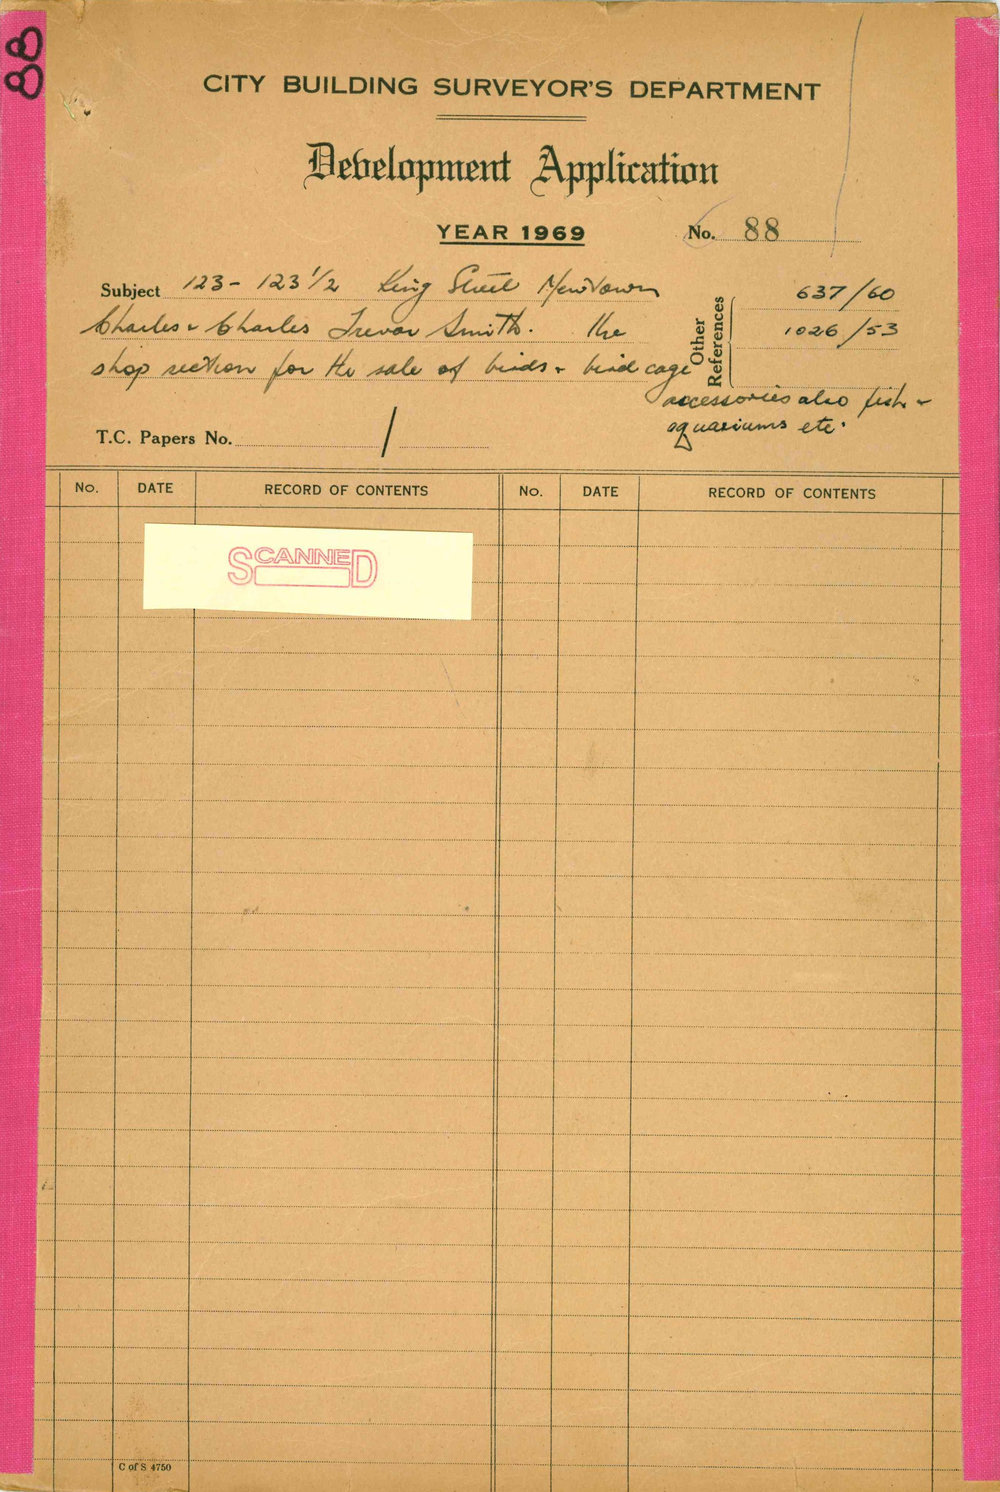 88
CITY BUILDING SURVEYOR'S DEPARTMENT
Development Application
YEAR 1969
No. 88
Subject 123 - 123 1/2 King Street Newtown
Charles & Charles Trevor Smith. The
shop section for the sale of birds & bird cage
accessories also fish &
aquariums etc.
Other References
637/60
1026/53
T.C. Papers No. /
No. DATE RECORD OF CONTENTS No. DATE RECORD OF CONTENTS
SCANNED
C of S 4750